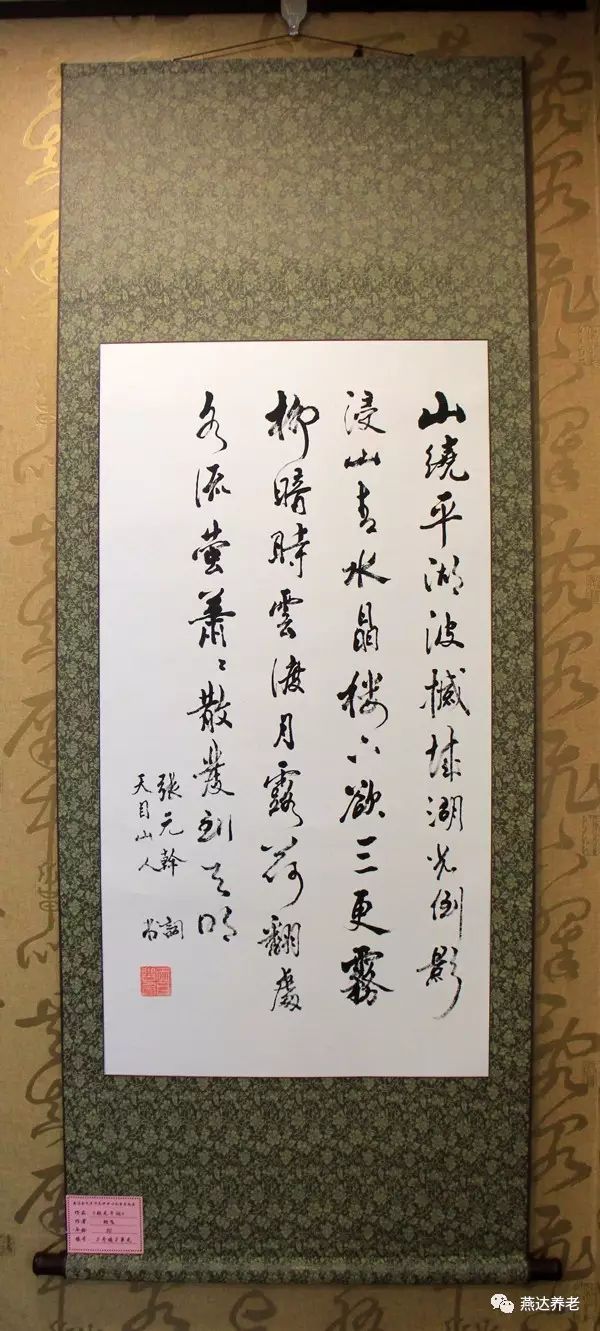 山繞平湖波撼城湖光倒影
浸山青水晶楼下欲三更霧
柳暗時雲渡月露荷翻處
水流螢蕭〻散發到天明
張元幹 詞
天目山人 书
燕达养老